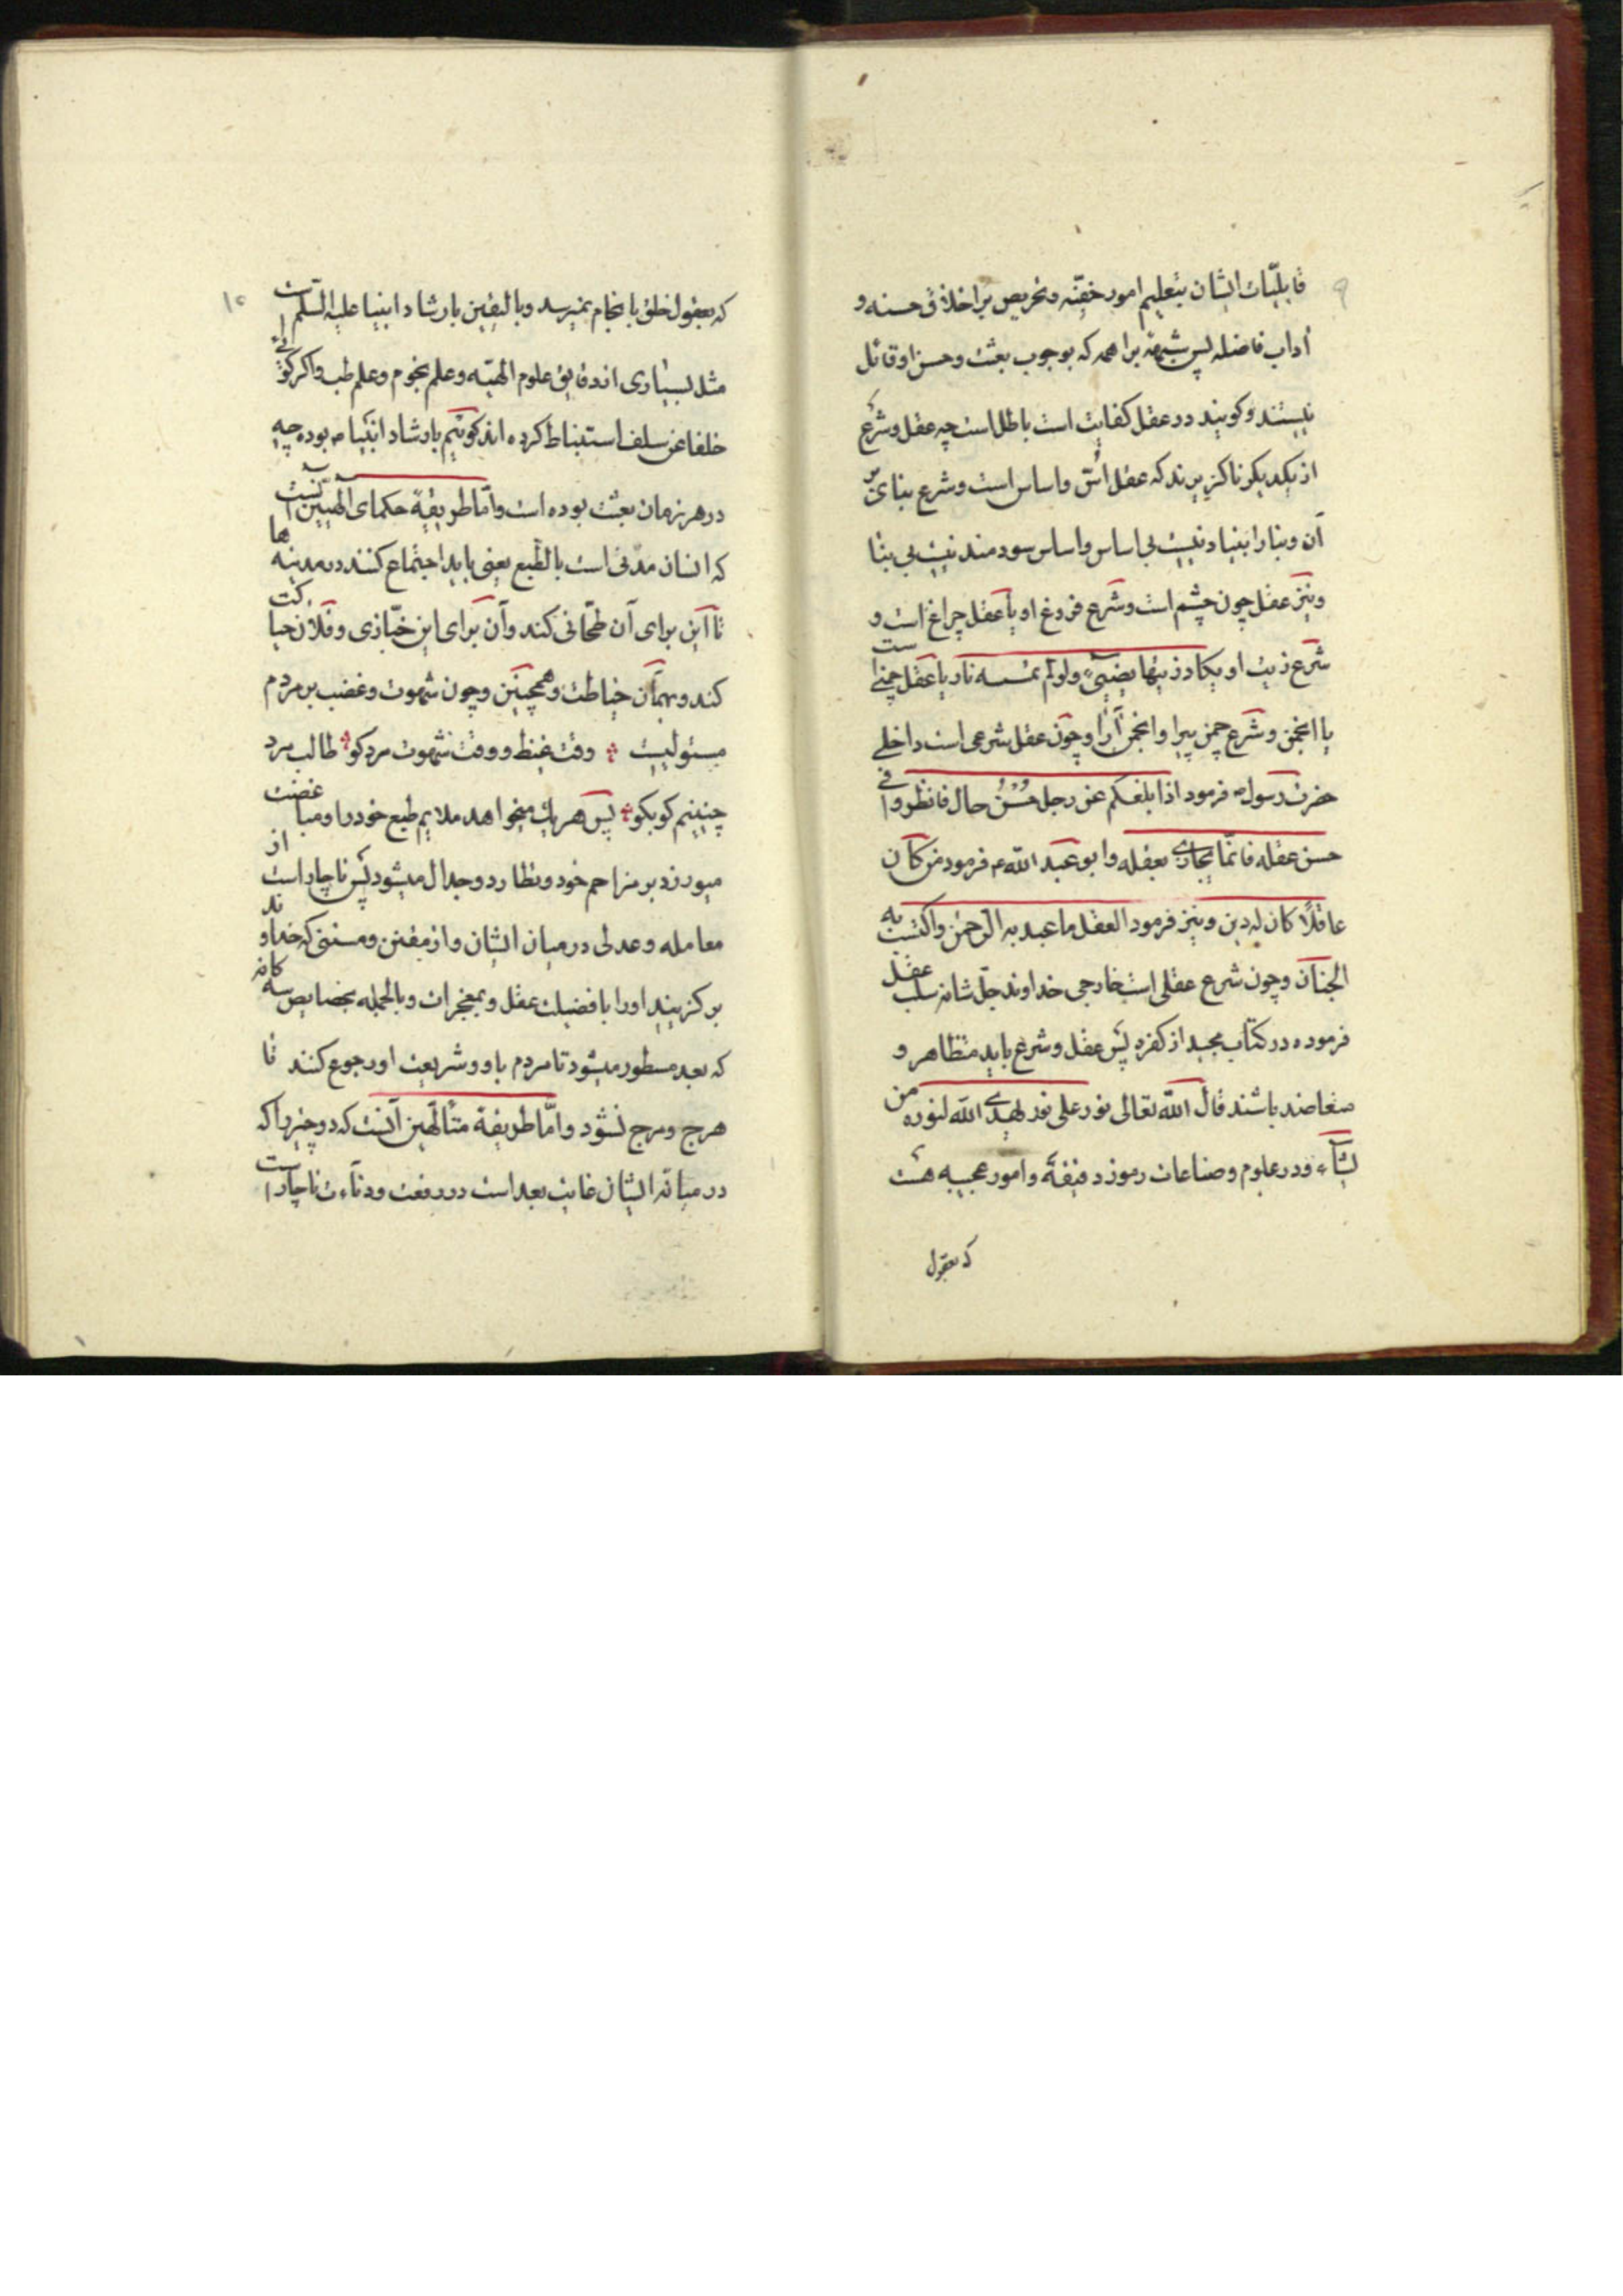 ۹
قابلیّات ایشان بتعلیم امور خفیّه و تحریص بر اخلاق حسنه و
آداب فاضله پس شبههٔ براهمه که بوجوب بعثت و حسن او قائل
نیستند و کویند در عقل کفایت است باطل است چه عقل و شرع
از یکدیکر ناکزیرند که عقل اُسّ و اساس است و شرع بنای بر
آن و بنا را بنیاد نیست بی اساس و اساس سودمند نیست بی بنا
و نیز عقل چون چشم است و شرع فروغ او یا عقل چراغ است و
شرع زیت او یکاد زیتها یضییء و لو لم تمسسه نار یا عقل چمنی است
یا انجمن و شرع چمن پیرا و انجمن آرا و چون عقل شرعی است داخلی
حضرت رسول ص فرمود اذا بلغکم عن رجل حُسْنُ حال فانظروا فی
حسن عقله فانّما یجازی بعقله و ابو عبد الله ع فرمود من کان
عاقلًا کان له دین و نیز فرمود العقل ما عبد به الرّحمن و اکتسب به
الجنان و چون شرع عقلی است خارجی خداوند جلّ شانه سلب عقل
فرموده در کتاب مجید از کفره پس عقل و شرع باید متظاهر و
متعاضد باشند قال الله تعالی نور علی نور یهدی الله لنوره من
یشآء و در علوم و صناعات رموز دقیقهٔ و امور عجیبه هست
که بعقول
۱۰
که بعقول خلق بانجام نمیرسد و بالیقین بارشاد انبیا علیه السّلم است
مثل بسیاری از دقایق علوم الهیّه و علم نجوم و علم طب و اکر کوئی
خلفا عن سلف استنباط کرده اند کوئیم بارشاد انبیا ص بوده چه
در هر زمان بعثت بوده است و امّا طریقهٔ حکمای الٰهیین آنست
که انسان مدنی است بالطّبع یعنی باید اجتماع کنند در مدینه ها
تا این برای آن طحّانی کند و آن برای این خبّازی و فلان حیاکت
کند و بهمان خیاطت و همچنین و چون شهوت و غضب بر مردم
مستولیست ؞ وقت غیظ و وقت شهوت مرد کو ؞ طالب مرد
چنینم کو بکو ؞ پس هر یک میخواهد ملایم طبع خود را و مباغضت
میورزد بر مزاحم خود و تطارد و جدال میشود پس ناچار است از
معامله و عدلی در میان ایشان و از مقنن و مسننی که خداوند
بر کزیند او را با فضیلت عقل و بمعجزات و بالجمله بخصایص سه کانه
که بعد مسطور میشود تا مردم باو و شریعت او رجوع کنند تا
هرج و مرج نشود و امّا طریقهٔ متألّهین آنست که دو چیز را که
در میانه ایشان غایت بعد است در رفعت و دنائت ناچار است